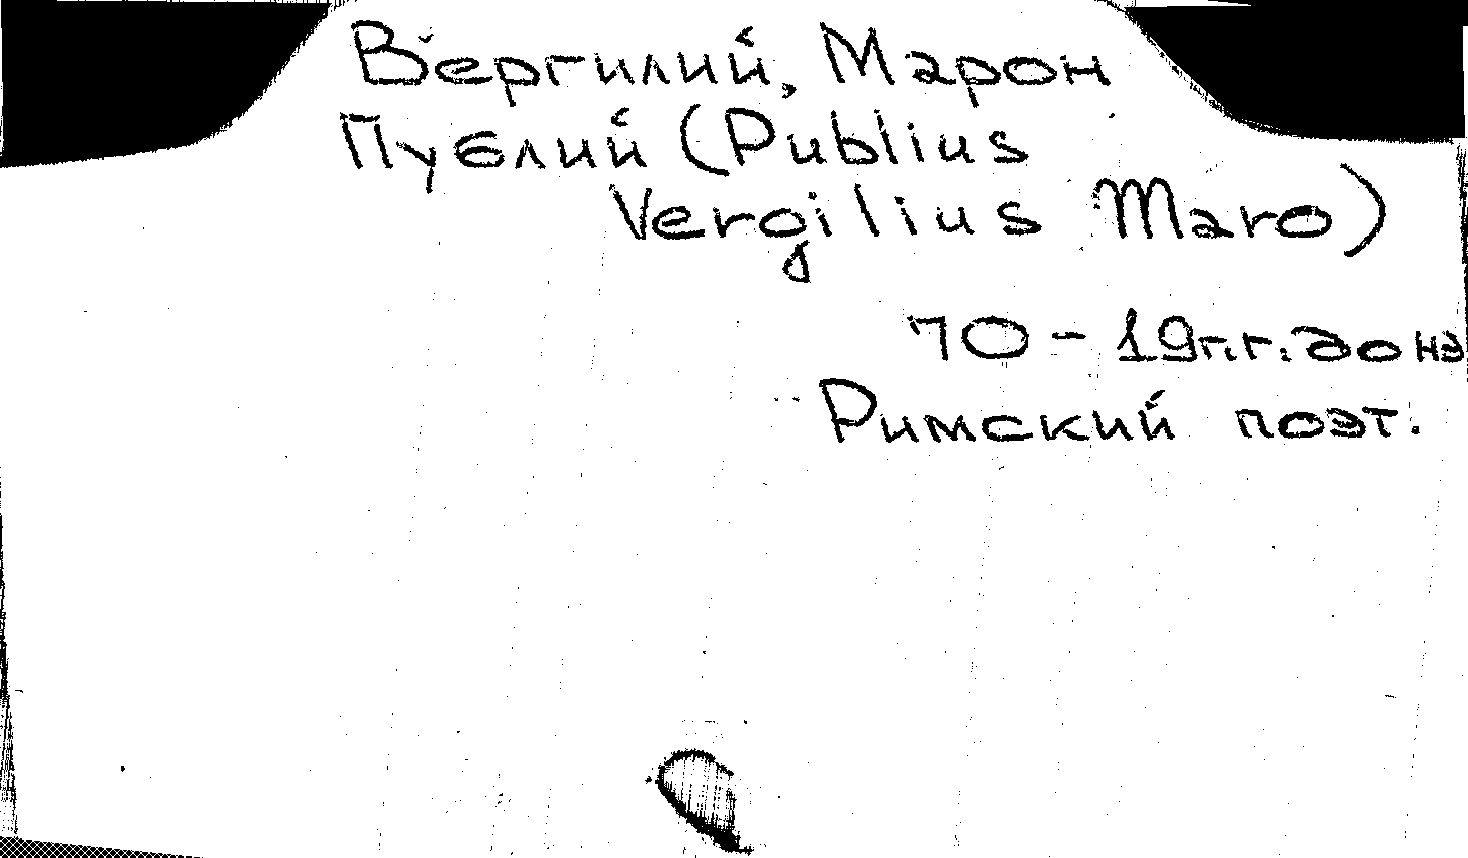 Вергилий, Марон
Публий (Publius
Vergilius Maro)
70-19 г.г. до нэ
Римский поэт.